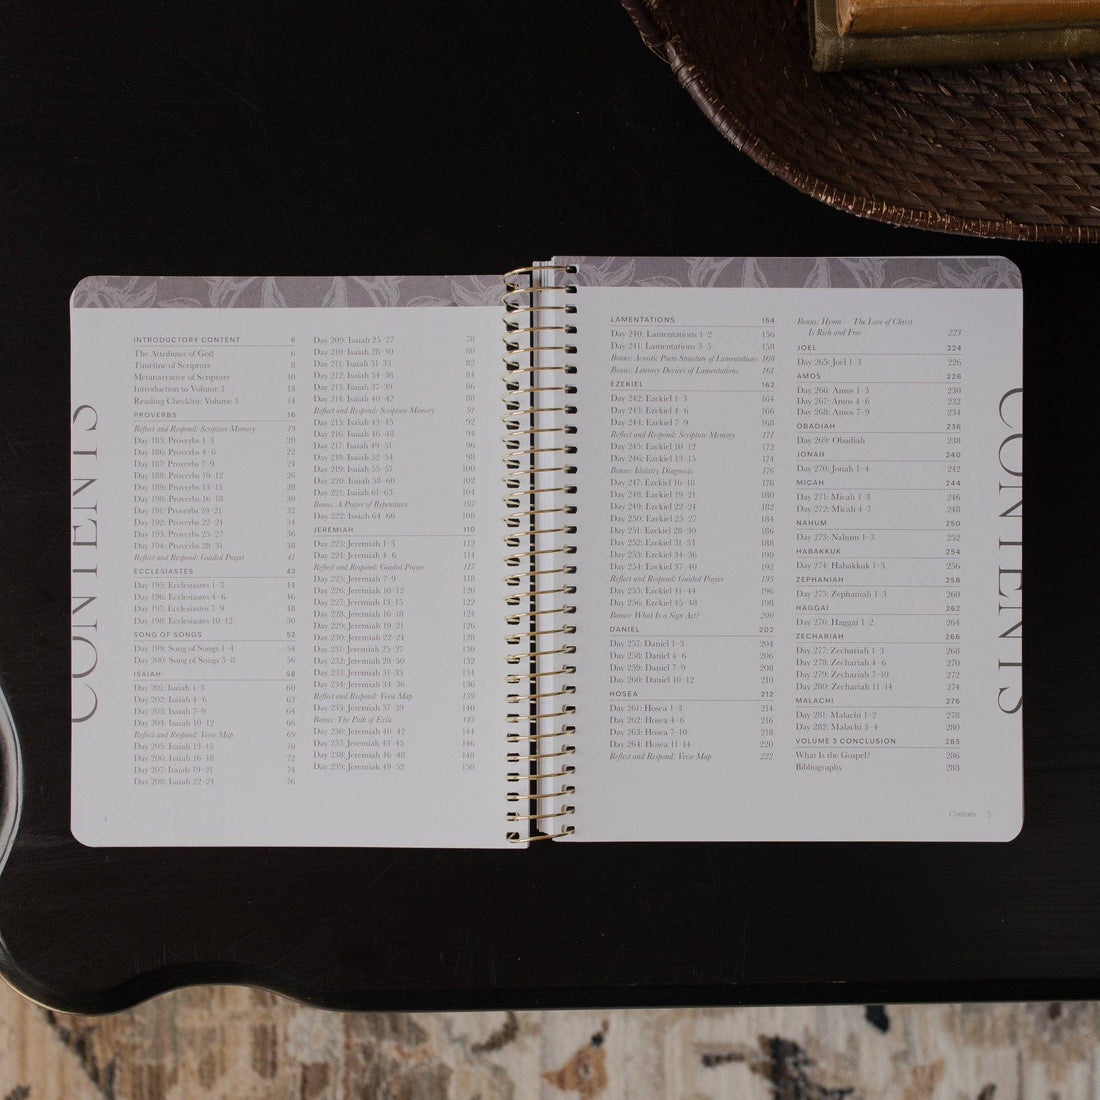 CONTENTS
INTRODUCTORY CONTENT 6
The Attributes of God 6
Timeline of Scripture 8
Metanarrative of Scripture 10
Introduction to Volume 3 13
Reading Checklist: Volume 3 14
PROVERBS 16
Reflect and Respond: Scripture Memory 19
Day 185: Proverbs 1–3 20
Day 186: Proverbs 4–6 22
Day 187: Proverbs 7–9 24
Day 188: Proverbs 10–12 26
Day 189: Proverbs 13–15 28
Day 190: Proverbs 16–18 30
Day 191: Proverbs 19–21 32
Day 192: Proverbs 22–24 34
Day 193: Proverbs 25–27 36
Day 194: Proverbs 28–31 38
Reflect and Respond: Guided Prayer 41
ECCLESIASTES 42
Day 195: Ecclesiastes 1–3 44
Day 196: Ecclesiastes 4–6 46
Day 197: Ecclesiastes 7–9 48
Day 198: Ecclesiastes 10–12 50
SONG OF SONGS 52
Day 199: Song of Songs 1–4 54
Day 200: Song of Songs 5–8 56
ISAIAH 58
Day 201: Isaiah 1–3 60
Day 202: Isaiah 4–6 62
Day 203: Isaiah 7–9 64
Day 204: Isaiah 10–12 66
Reflect and Respond: Verse Map 69
Day 205: Isaiah 13–15 70
Day 206: Isaiah 16–18 72
Day 207: Isaiah 19–21 74
Day 208: Isaiah 22–24 76
4
Day 209: Isaiah 25–27 78
Day 210: Isaiah 28–30 80
Day 211: Isaiah 31–33 82
Day 212: Isaiah 34–36 84
Day 213: Isaiah 37–39 86
Day 214: Isaiah 40–42 88
Reflect and Respond: Scripture Memory 91
Day 215: Isaiah 43–45 92
Day 216: Isaiah 46–48 94
Day 217: Isaiah 49–51 96
Day 218: Isaiah 52–54 98
Day 219: Isaiah 55–57 100
Day 220: Isaiah 58–60 102
Day 221: Isaiah 61–63 104
Bonus: A Prayer of Repentance 107
Day 222: Isaiah 64–66 108
JEREMIAH 110
Day 223: Jeremiah 1–3 112
Day 224: Jeremiah 4–6 114
Reflect and Respond: Guided Prayer 117
Day 225: Jeremiah 7–9 118
Day 226: Jeremiah 10–12 120
Day 227: Jeremiah 13–15 122
Day 228: Jeremiah 16–18 124
Day 229: Jeremiah 19–21 126
Day 230: Jeremiah 22–24 128
Day 231: Jeremiah 25–27 130
Day 232: Jeremiah 28–30 132
Day 233: Jeremiah 31–33 134
Day 234: Jeremiah 34–36 136
Reflect and Respond: Verse Map 139
Day 235: Jeremiah 37–39 140
Bonus: The Path of Exile 143
Day 236: Jeremiah 40–42 144
Day 237: Jeremiah 43–45 146
Day 238: Jeremiah 46–48 148
Day 239: Jeremiah 49–52 150
LAMENTATIONS 154
Day 240: Lamentations 1–2 156
Day 241: Lamentations 3–5 158
Bonus: Acrostic Poem Structure of Lamentations 160
Bonus: Literary Devices of Lamentations 161
EZEKIEL 162
Day 242: Ezekiel 1–3 164
Day 243: Ezekiel 4–6 166
Day 244: Ezekiel 7–9 168
Reflect and Respond: Scripture Memory 171
Day 245: Ezekiel 10–12 172
Day 246: Ezekiel 13–15 174
Bonus: Idolatry Diagnosis 176
Day 247: Ezekiel 16–18 178
Day 248: Ezekiel 19–21 180
Day 249: Ezekiel 22–24 182
Day 250: Ezekiel 25–27 184
Day 251: Ezekiel 28–30 186
Day 252: Ezekiel 31–33 188
Day 253: Ezekiel 34–36 190
Day 254: Ezekiel 37–40 192
Reflect and Respond: Guided Prayer 195
Day 255: Ezekiel 41–44 196
Day 256: Ezekiel 45–48 198
Bonus: What Is a Sign Act? 200
DANIEL 202
Day 257: Daniel 1–3 204
Day 258: Daniel 4–6 206
Day 259: Daniel 7–9 208
Day 260: Daniel 10–12 210
HOSEA 212
Day 261: Hosea 1–3 214
Day 262: Hosea 4–6 216
Day 263: Hosea 7–10 218
Day 264: Hosea 11–14 220
Reflect and Respond: Verse Map 222
Bonus: Hymn — The Love of Christ
Is Rich and Free 223
JOEL 224
Day 265: Joel 1–3 226
AMOS 228
Day 266: Amos 1–3 230
Day 267: Amos 4–6 232
Day 268: Amos 7–9 234
OBADIAH 236
Day 269: Obadiah 238
JONAH 240
Day 270: Jonah 1–4 242
MICAH 244
Day 271: Micah 1–3 246
Day 272: Micah 4–7 248
NAHUM 250
Day 273: Nahum 1–3 252
HABAKKUK 254
Day 274: Habakkuk 1–3 256
ZEPHANIAH 258
Day 275: Zephaniah 1–3 260
HAGGAI 262
Day 276: Haggai 1–2 264
ZECHARIAH 266
Day 277: Zechariah 1–3 268
Day 278: Zechariah 4–6 270
Day 279: Zechariah 7–10 272
Day 280: Zechariah 11–14 274
MALACHI 276
Day 281: Malachi 1–2 278
Day 282: Malachi 3–4 280
VOLUME 3 CONCLUSION 285
What Is the Gospel? 286
Bibliography 288
Contents 5
CONTENTS